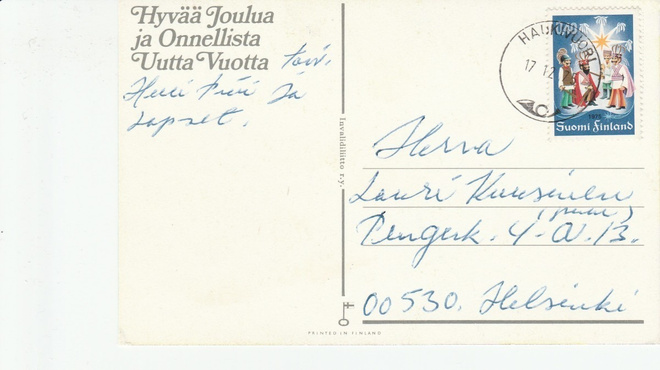 Hyvää Joulua
ja Onnellista
Uutta Vuotta toiv.
ja
lapset.
Invalidiliitto r.y.
HAUKIVUORI
17.12
1975
Suomi Finland
Herra
Lauri Kuusinen
Pengerk. 4. A. 13.
00530. Helsinki
PRINTED IN FINLAND